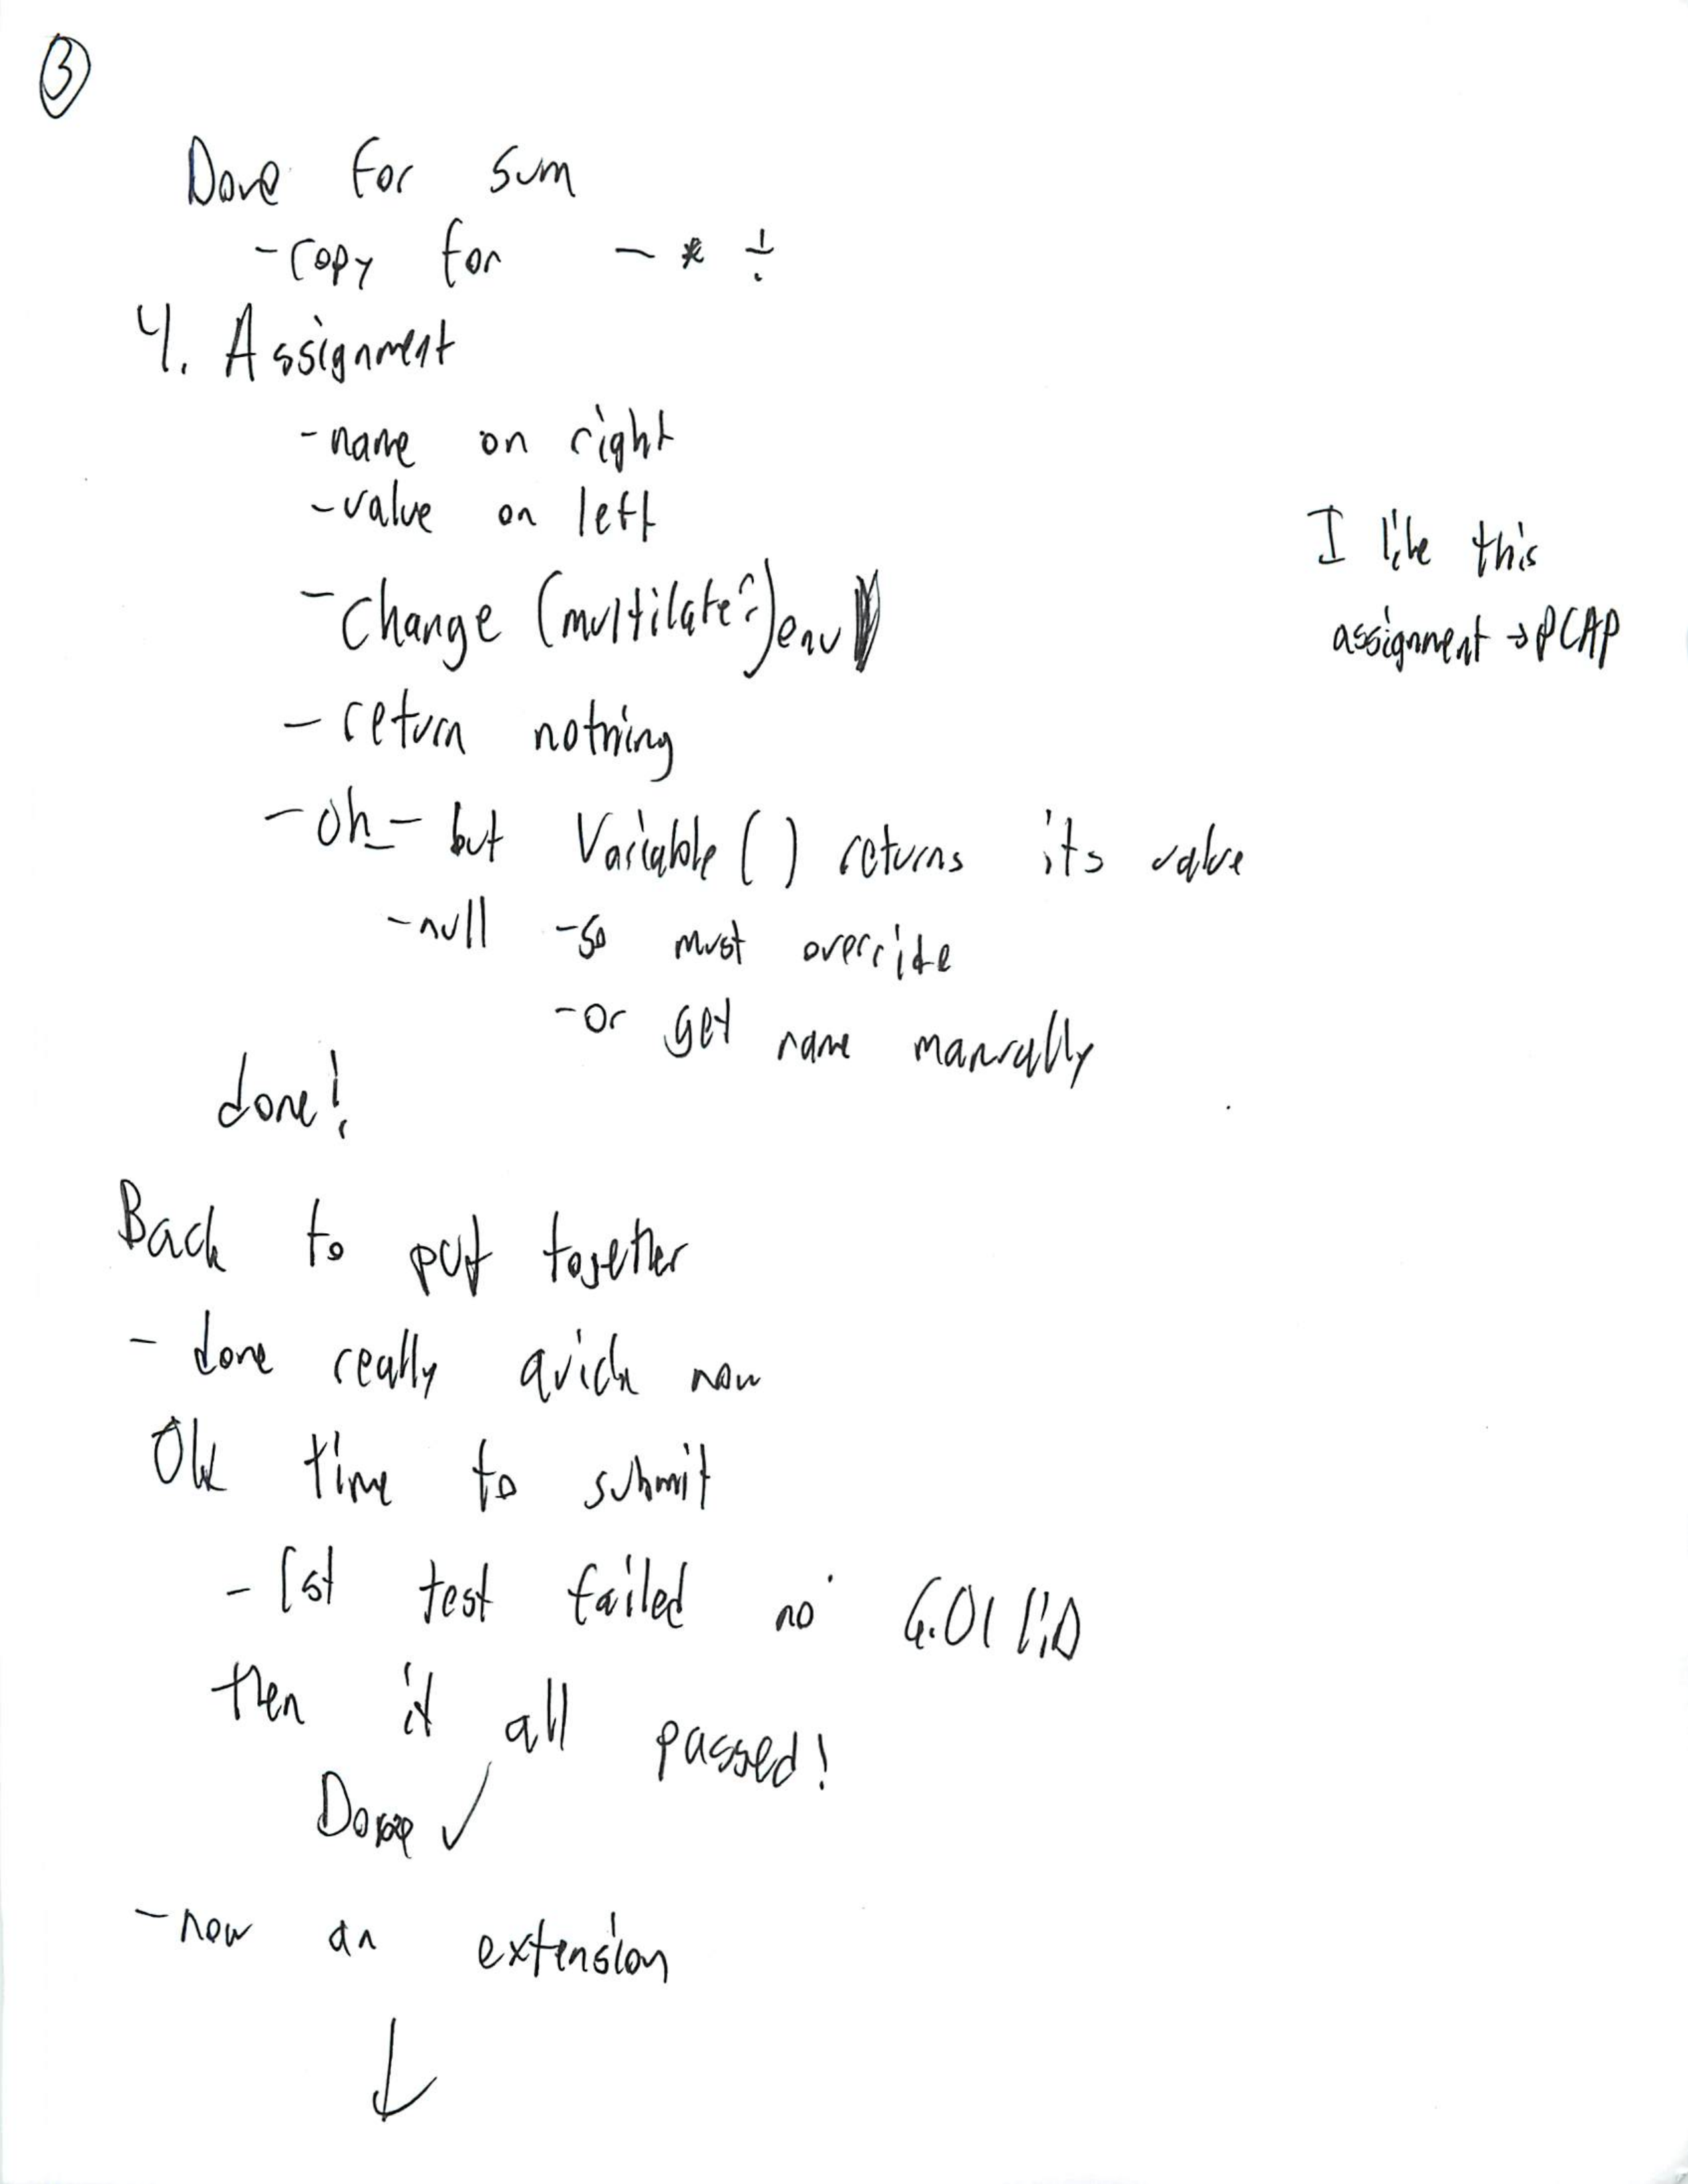 3
Done for sum
- copy for - * ÷
4. Assignment
- name on right
- value on left
- change (multilate?) env
I like this
assignment → PCAP
- return nothing
- oh - but Variable() returns its value
- null - so must override
- or get name manually
done!
Back to put together
- done really quick now
Ok time to submit
- 1st test failed no 6.01 lib
then it all passed!
Done ✓
- now an extension
↓